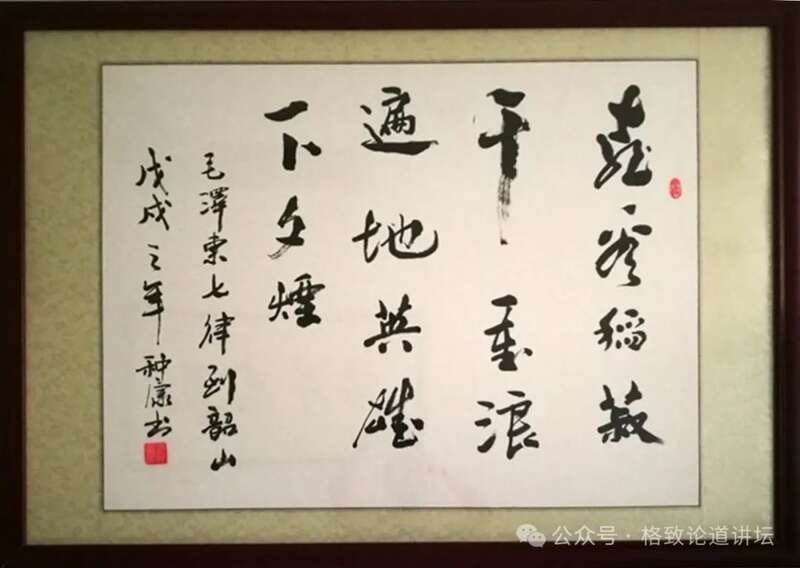 喜看稻菽
千重浪
遍地英雄
下夕煙
毛澤東七律到韶山
戊戌之年 种康书
公众号 · 格致论道讲坛